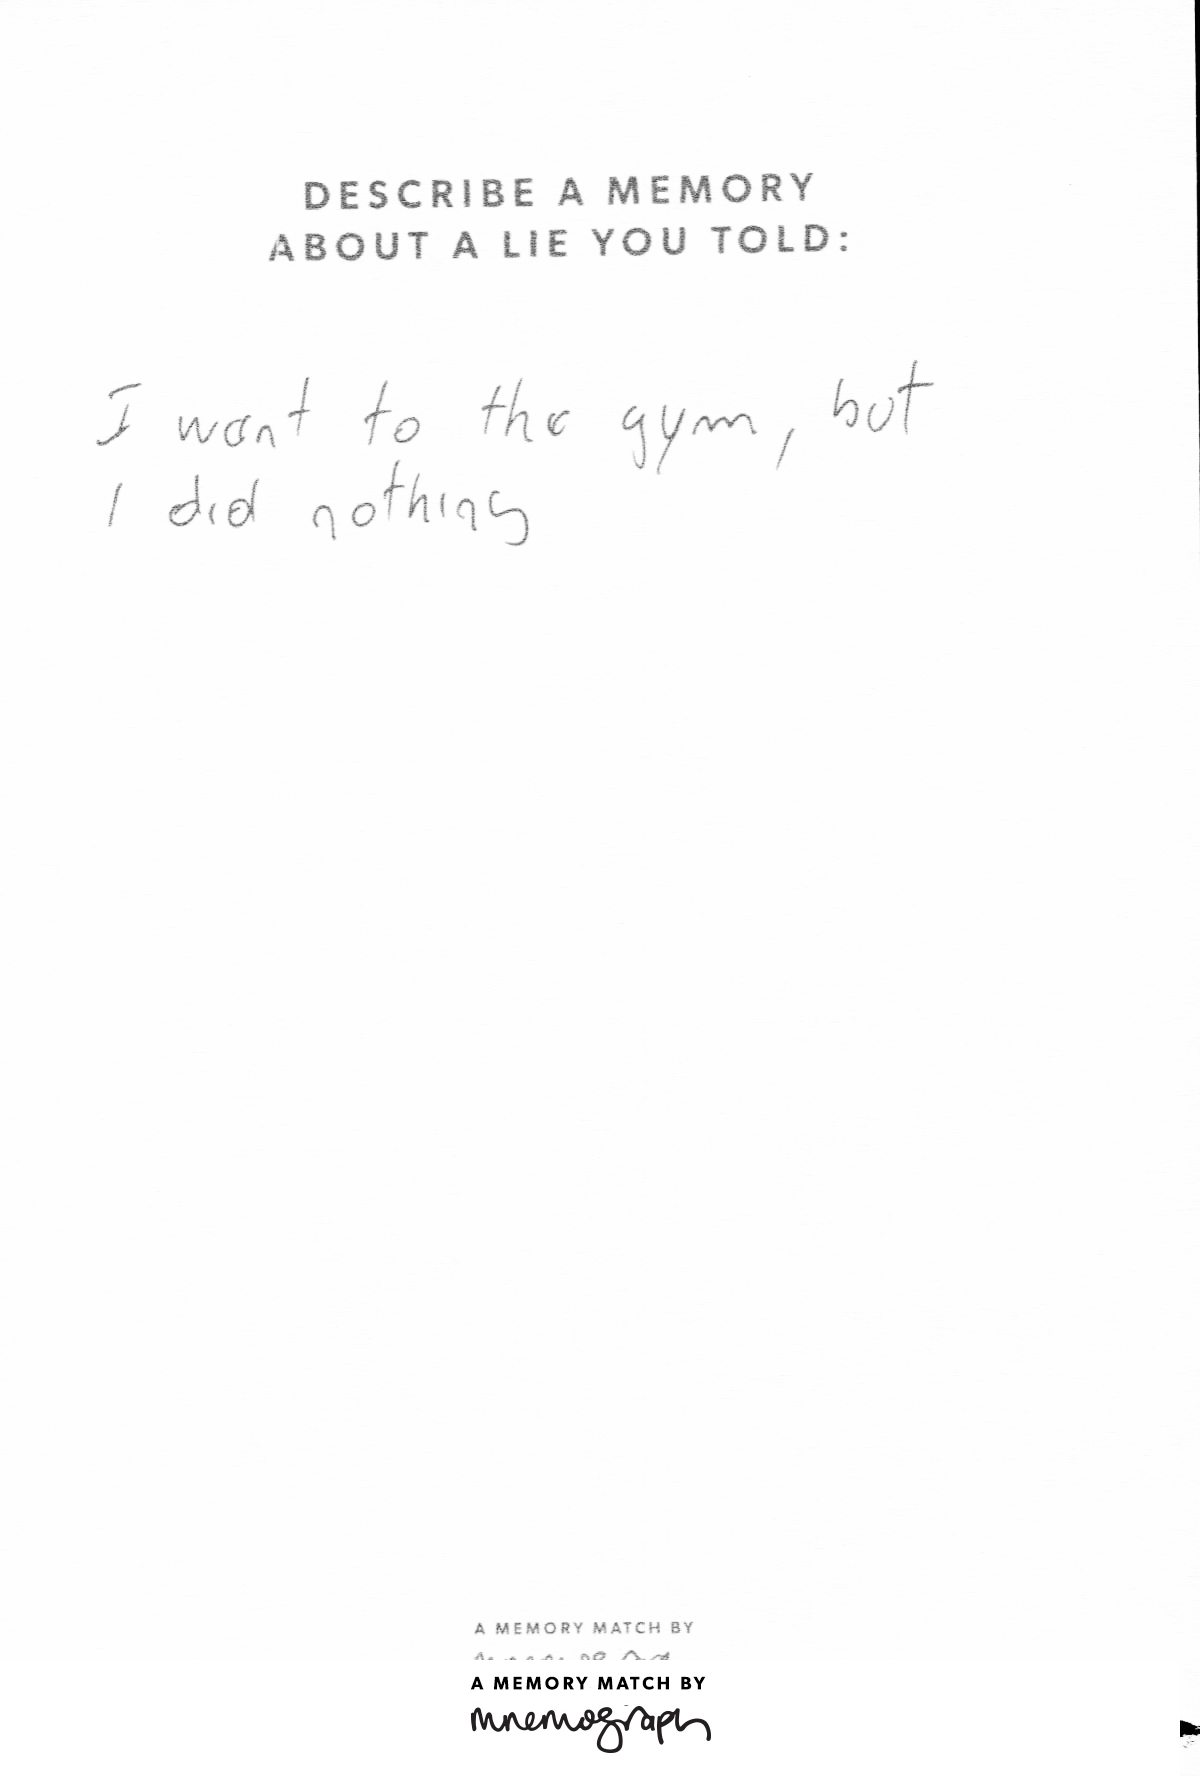 DESCRIBE A MEMORY
ABOUT A LIE YOU TOLD:
I want to the gym, but
I did nothing
A MEMORY MATCH BY
A MEMORY MATCH BY
mnemograph